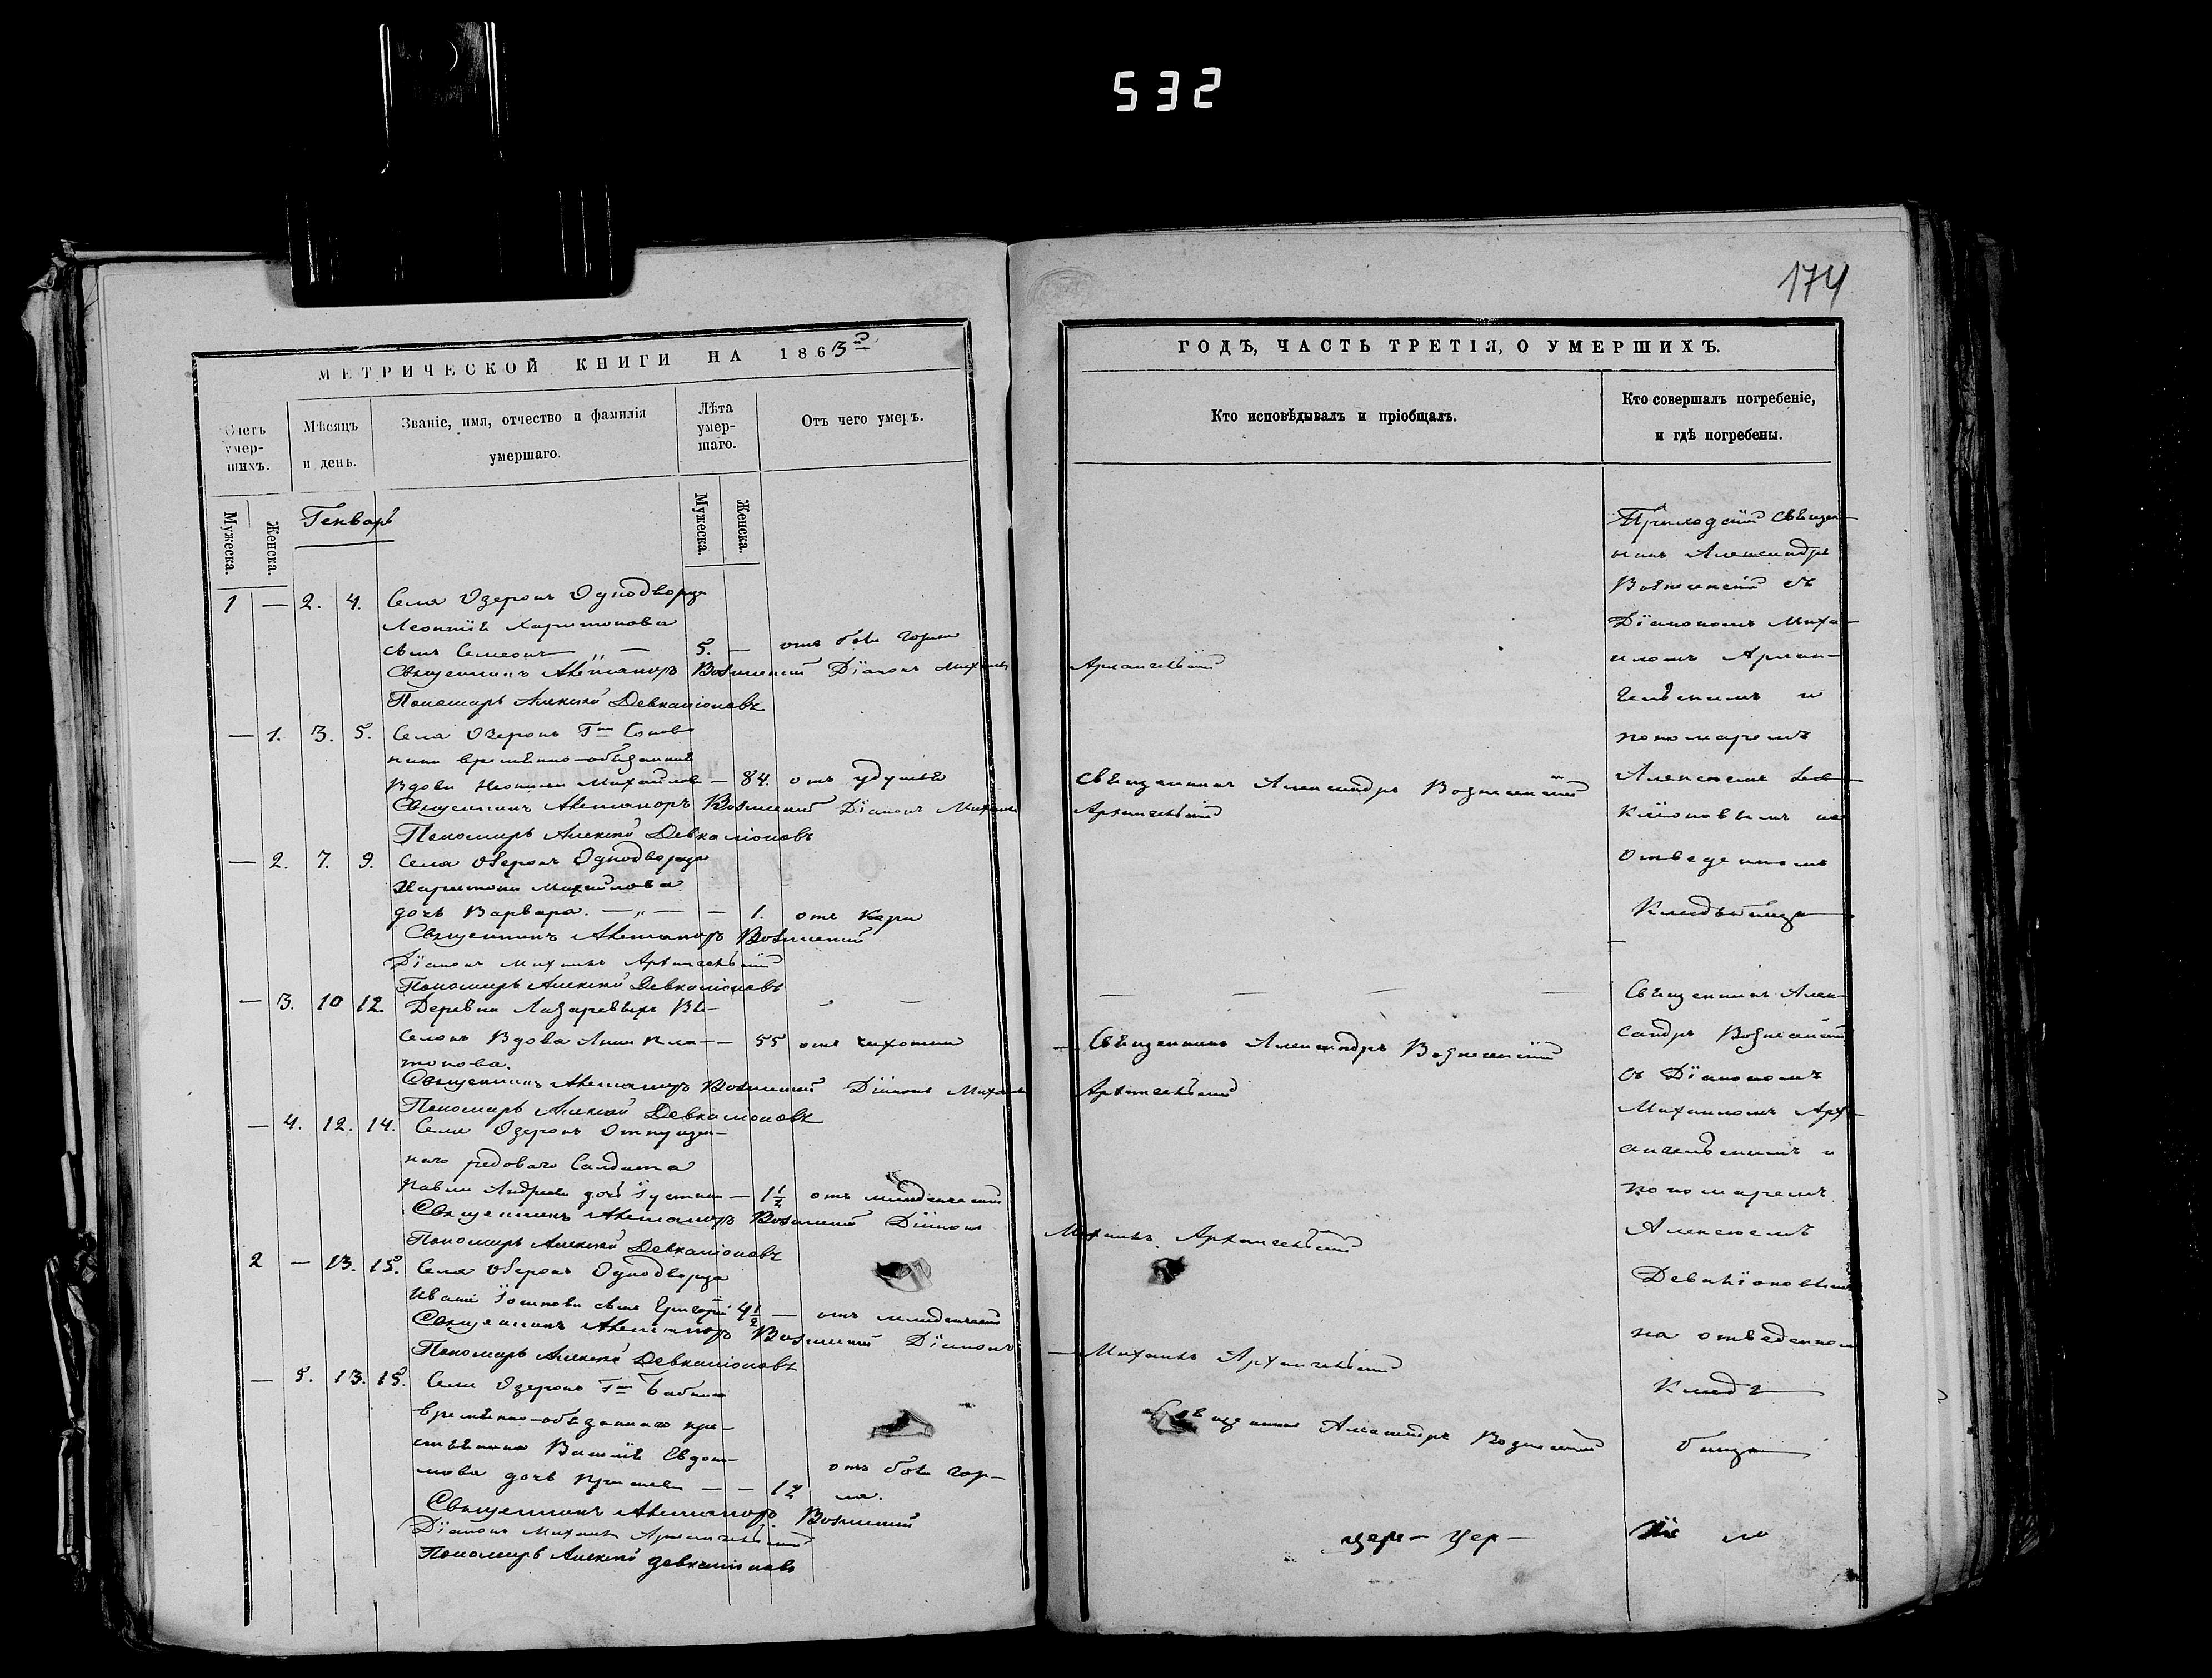 532
174
МЕТРИЧЕСКОЙ КНИГИ НА 1863й
Счетъ умер-шихъ.
Мѣсяцъ и день.
Званіе, имя, отчество и фамилія умершаго.
Лѣта умер-шаго.
Отъ чего умеръ.
Мужеска.
Женска.
Генварь
Мужеска.
Женска.
1 — 2. 4. Села Озерокъ Однодворца
Леонтія Харитонова
сынъ Семеонъ „ — 5. — отъ боли горла
Священникъ Александръ Вознесенскій Діаконъ Михаилъ
Пономарь Алексѣй Девкаліоновъ
— 1. 3. 5. Села Озерокъ Гжи
временно-обязанная
Вдова Михайлова — 84. отъ удушья
Священникъ Александръ Вознесенскій Діаконъ Михаилъ
Пономарь Алексѣй Девкаліоновъ
— 2. 7. 9. Села Озерокъ Однодворца
Харитона Михайлова
дочь Варвара. — „ — — 1. отъ кори
Священникъ Александръ Вознесенскій
Діаконъ Михаилъ Архангельскій
Пономарь Алексѣй Девкаліоновъ
— 3. 10 12. Деревни Лазаревыхъ Вы-
селокъ Вдова Анна Пла- — 55 отъ чахотки
тонова.
Священникъ Александръ Вознесенскій Діаконъ Михаилъ
Пономарь Алексѣй Девкаліоновъ
— 4. 12. 14. Села Озерокъ Отпущен-
наго рядоваго Салдата
Павла Андреева дочь — 1½ отъ младенческой
Священникъ Александръ Вознесенскій Діаконъ
Пономарь Алексѣй Девкаліоновъ
2 — 13. 15. Села Озерокъ Однодворца
Ивана сынъ Григорій 4½ — отъ младенческой
Священникъ Александръ Вознесенскій Діаконъ
Пономарь Алексѣй Девкаліоновъ
— 5. 13. 15. Села Озерокъ Гжи
временно-обязаннаго кре-
стьянина Василія Евдоки-
мова дочь — — 12 отъ боли гор-
ла.
Священникъ Александръ Вознесенскій
Діаконъ Михаилъ Архангельскій
Пономарь Алексѣй Девкаліоновъ
ГОДЪ, ЧАСТЬ ТРЕТІЯ, О УМЕРШИХЪ.
Кто исповѣдывалъ и пріобщалъ.
Кто совершалъ погребеніе,
и гдѣ погребены.
Архангельскій
Священникъ Александръ Вознесенскій
Архангельскій
— — — —
— Священникъ Александръ Вознесенскій
Архангельскій
Михаилъ Архангельскій
— Михаилъ Архангельскій
Священникъ Александръ Вознесенскій
цер— цер—
Приходскій Священ-
никъ Александръ
Вознесенскій съ
Діакономъ Миха-
иломъ Архан-
гельскимъ и
пономаремъ
Алексѣемъ Дев-
каліоновымъ на
отведенномъ
Кладбищѣ
Священникъ Алек-
сандръ Вознесенскій
съ Діакономъ
Михаиломъ Арх-
ангельскимъ и
пономаремъ
Алексѣемъ
Девкаліоновымъ
на отведенномъ
Клад
бищѣ